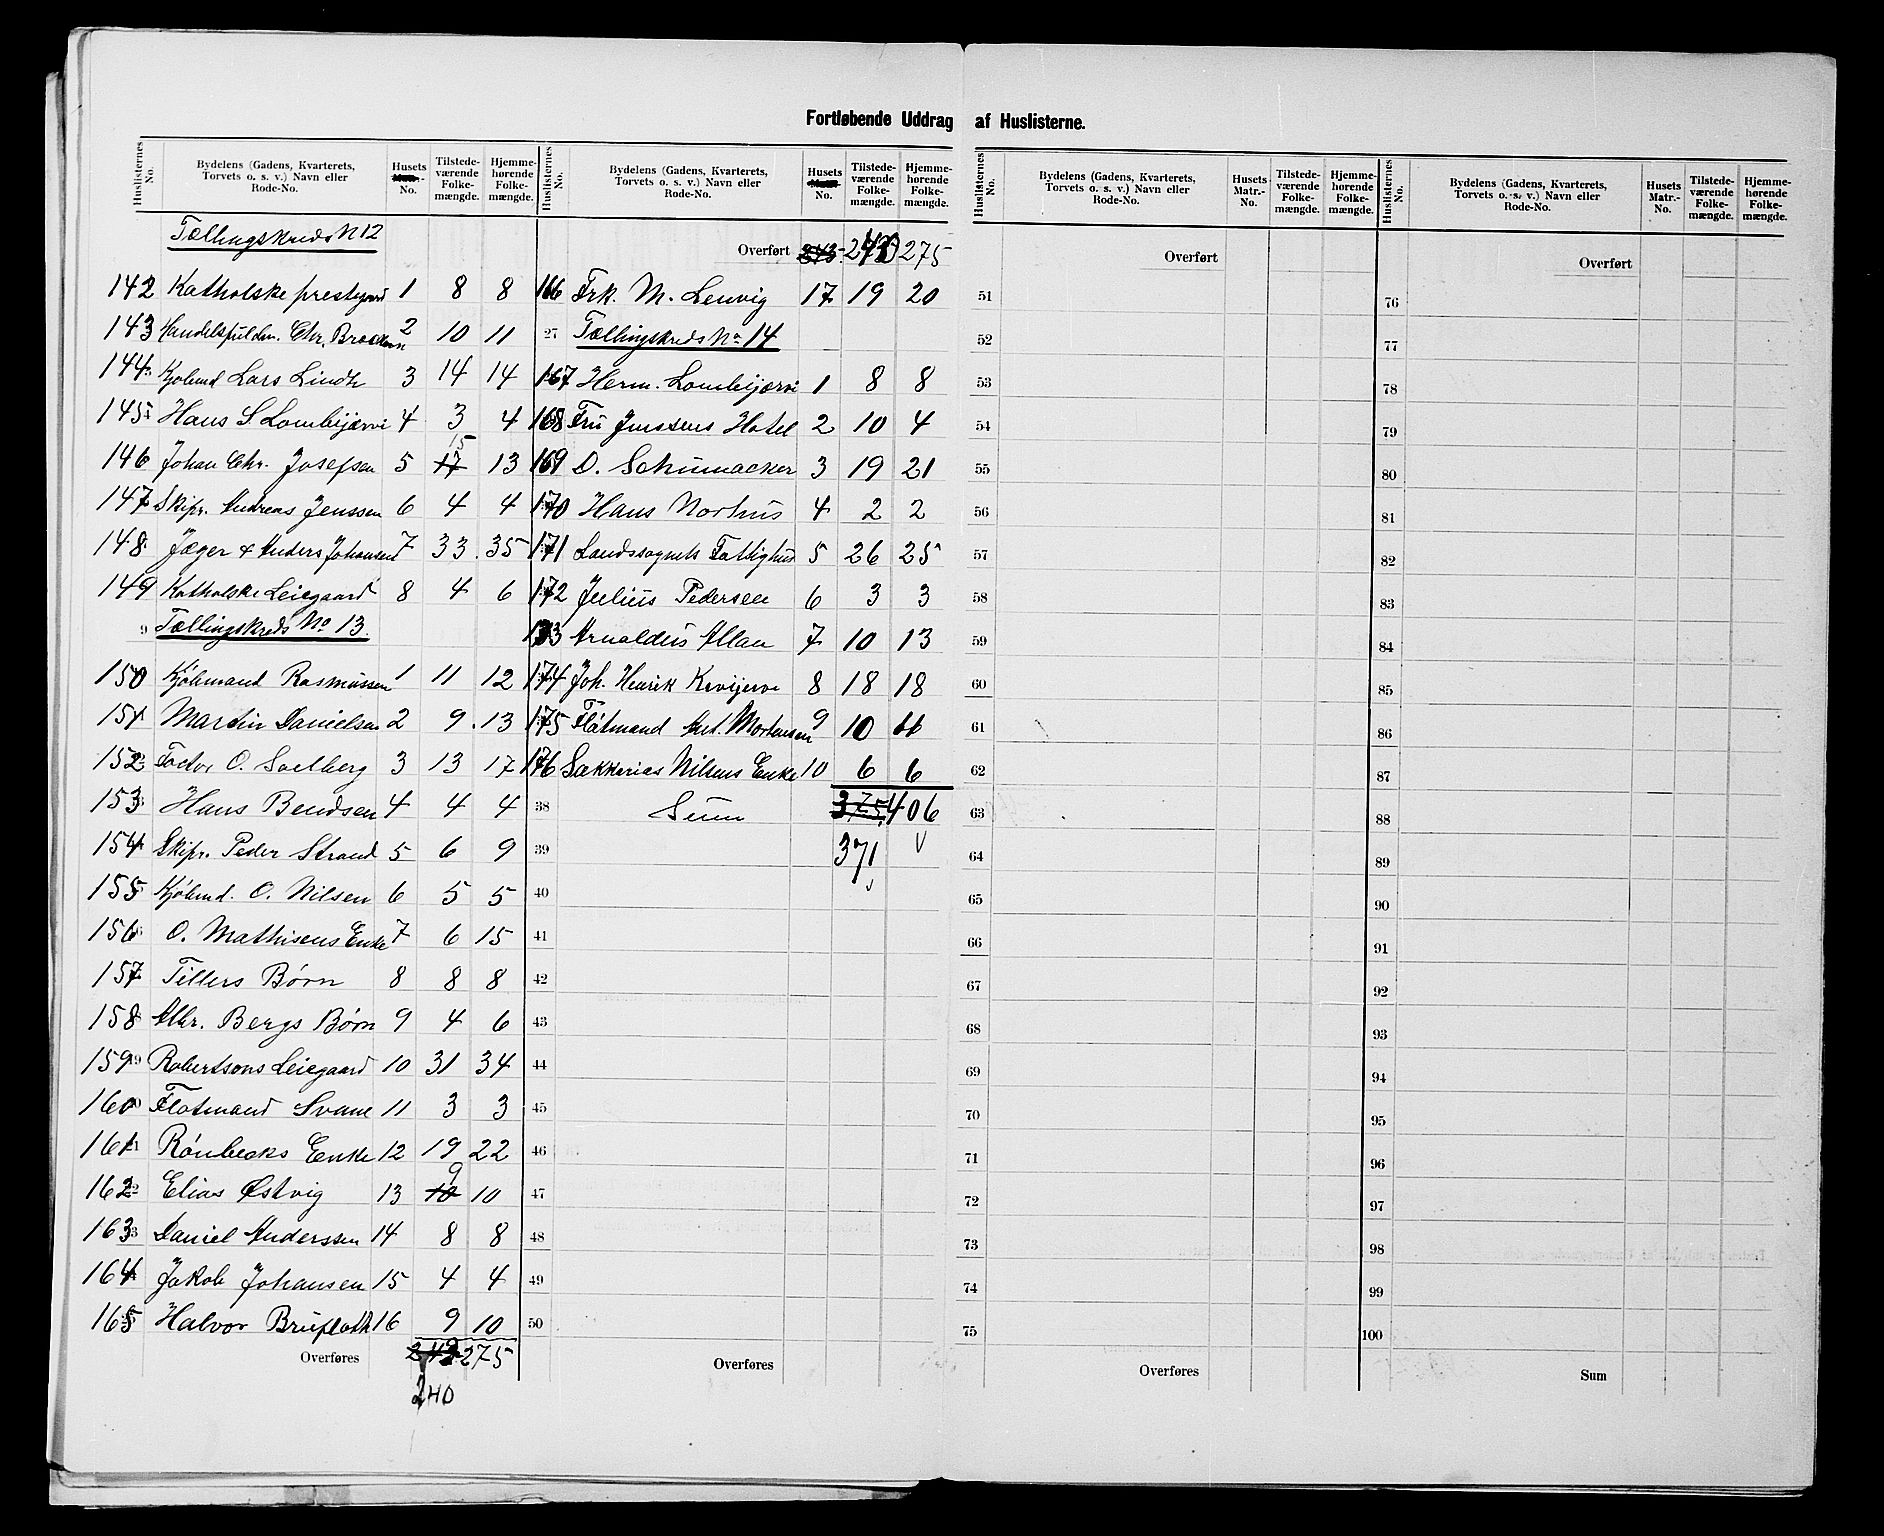 Fortløbende Uddrag af Huslisterne.
Huslisternes No. Bydelens (Gadens, Kvarterets, Torvets o. s. v.) Navn eller Rode-No. Husets Matr.-No. Tilstede-værende Folke-mængde. Hjemme-hørende Folke-mængde.
Tællingskreds N 12
142 Katholske prestegaard 1 8 8
143 Chr. 2 10 11
144 Kjøbmd Lars Lindh 3 14 14
145 Hans S. Lombijærvi 4 3 4
146 Johan Chr. Josefsen 5 17 15 13
147 Skipr. Andreas Jenssen 6 4 4
148 Jæger & Anders Johansen 7 33 35
149 Katholske Leiegaard 8 4 6
9 Tællingskreds No 13.
150 Kjøbmand Rasmussen 1 11 12
151 Martin Danielsen 2 9 13
152 Factor O. Soelberg 3 13 17
153 Hans Bendsen 4 4 4
154 Skipr. Peder Strand 5 6 9
155 Kjøbmd. O. Nilsen 6 5 5
156 O. Mathisens Enke 7 6 15
157 Tillers Børn 8 8 8
158 Bergs Børn 9 4 6
159 Robertsons Leiegaard 10 31 34
160 Flotmand Svane 11 3 3
161 Rönbecks Enke 12 19 22
162 Elias Østvig 13 10 9 10
163 Daniel Anderssen 14 8 8
164 Jakob Johansen 15 4 4
165 Halvor 16 9 10
Overføres 275
240
Huslisternes No. Bydelens (Gadens, Kvarterets, Torvets o. s. v.) Navn eller Rode-No. Husets Matr.-No. Tilstede-værende Folke-mængde. Hjemme-hørende Folke-mængde.
Overført 243 240 275
166 Frk. M. Lenvig 17 19 20
27 Tællingskreds No 14
167 Herm. Lombijærvi 1 8 8
168 Fru Jenssens Hotel 2 10 4
169 D. Schumacker 3 19 21
170 Hans Norhus 4 2 2
171 Landssognets Fattighus 5 26 25
172 Julius Pedersen 6 3 3
173 Arnoldus Allan 7 10 13
174 Joh. Henrik 8 18 18
175 Flötmand Mortensen 9 10 11
176 Sakkarias Nilsens Enke 10 6 6
38 Sum 375 406
39 371
40
41
42
43
44
45
46
47
48
49
50
Overføres
Huslisternes No. Bydelens (Gadens, Kvarterets, Torvets o. s. v.) Navn eller Rode-No. Husets Matr.-No. Tilstede-værende Folke-mængde. Hjemme-hørende Folke-mængde.
Overført
51
52
53
54
55
56
57
58
59
60
61
62
63
64
65
66
67
68
69
70
71
72
73
74
75
Overføres
Huslisternes No. Bydelens (Gadens, Kvarterets, Torvets o. s. v.) Navn eller Rode-No. Husets Matr.-No. Tilstede-værende Folke-mængde. Hjemme-hørende Folke-mængde.
Overført
76
77
78
79
80
81
82
83
84
85
86
87
88
89
90
91
92
93
94
95
96
97
98
99
100
Sum